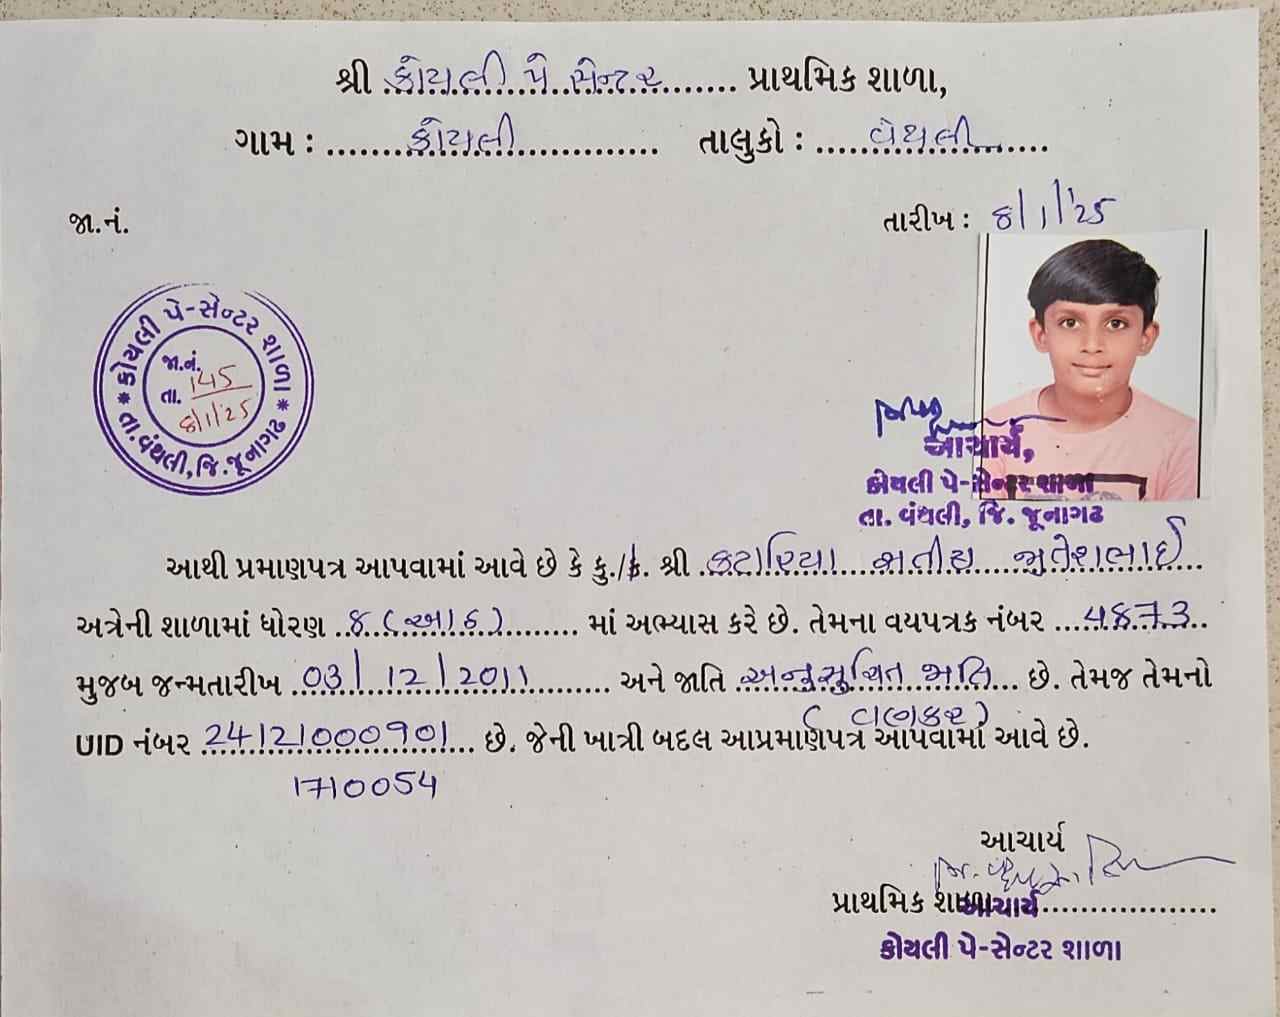 શ્રી કોયલી પે સેન્ટર પ્રાથમિક શાળા,
ગામ : કોયલી તાલુકો : વંથલી
જા.નં. તારીખ : ૪/૧/૨૫
કોયલી પે-સેન્ટર શાળા
જા.નં. 145
તા. 8/1/25
* તા.વંથલી,જિ.જૂનાગઢ *
આચાર્ય,
કોયલી પે-સેન્ટર શાળા
તા. વંથલી, જિ. જૂનાગઢ
આથી પ્રમાણપત્ર આપવામાં આવે છે કે કુ./ શ્રી કટારિયા જીતેશભાઈ
અત્રેની શાળામાં ધોરણ ૮ (આઠ) માં અભ્યાસ કરે છે. તેમના વયપત્રક નંબર 4873
મુજબ જન્મતારીખ 03/12/2011 અને જાતિ અનુસુચિત જાતિ છે. તેમજ તેમનો
(વણકર)
UID નંબર 24121000901 છે. જેની ખાત્રી બદલ આપ્રમાણપત્ર આપવામાં આવે છે.
1710054
આચાર્ય
પ્રાથમિક શાળા
આચાર્ય
કોયલી પે-સેન્ટર શાળા